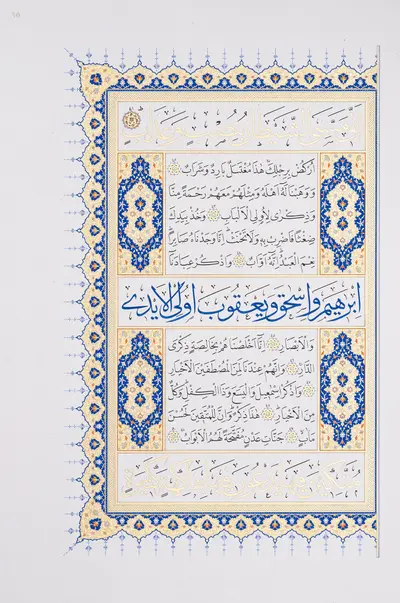 اُرْكُضْ بِرِجْلِكَ هٰذَا مُغْتَسَلٌ بَارِدٌ وَشَرَابٌ
وَوَهَبْنَا لَهُ اَهْلَهُ وَمِثْلَهُمْ مَعَهُمْ رَحْمَةً مِنَّا
وَذِكْرٰى لِاُولِى الْاَلْبَابِ وَخُذْ بِيَدِكَ
ضِغْثًا فَاضْرِبْ بِهِ وَلَا تَحْنَثْ اِنَّا وَجَدْنَاهُ صَابِرًا
نِعْمَ الْعَبْدُ اِنَّهُ اَوَّابٌ وَاذْكُرْ عِبَادَنَا
اِبْرٰهِيمَ وَاِسْحٰقَ وَيَعْقُوبَ اُولِى الْاَيْدِى
وَالْاَبْصَارِ اِنَّا اَخْلَصْنَاهُمْ بِخَالِصَةٍ ذِكْرَى
الدَّارِ وَاِنَّهُمْ عِنْدَنَا لَمِنَ الْمُصْطَفَيْنَ الْاَخْيَارِ
وَاذْكُرْ اِسْمٰعِيلَ وَالْيَسَعَ وَذَا الْكِفْلِ وَكُلٌّ
مِنَ الْاَخْيَارِ هٰذَا ذِكْرٌ وَاِنَّ لِلْمُتَّقِينَ لَحُسْنَ
مَاٰبٍ جَنَّاتِ عَدْنٍ مُفَتَّحَةً لَهُمُ الْاَبْوَابُ